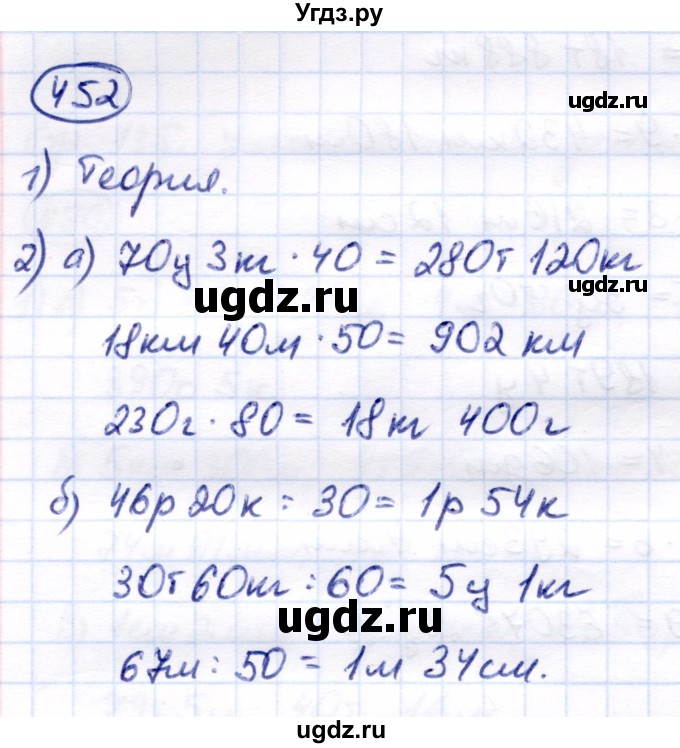 Угдз.ру
ugdz.ru
452
ugdz.ru
1) Теория.
2) а) 70ц 3кг · 40 = 280т 120кг
ugdz.ru
ugdz.ru
18км 40м · 50 = 902 км
230г · 80 = 18кг 400г
ugdz.ru
б) 46р 20к : 30 = 1р 54к
30т 60кг : 60 = 5ц 1кг
ugdz.ru
67м : 50 = 1м 34см.
ugdz.ru
ugdz.ru